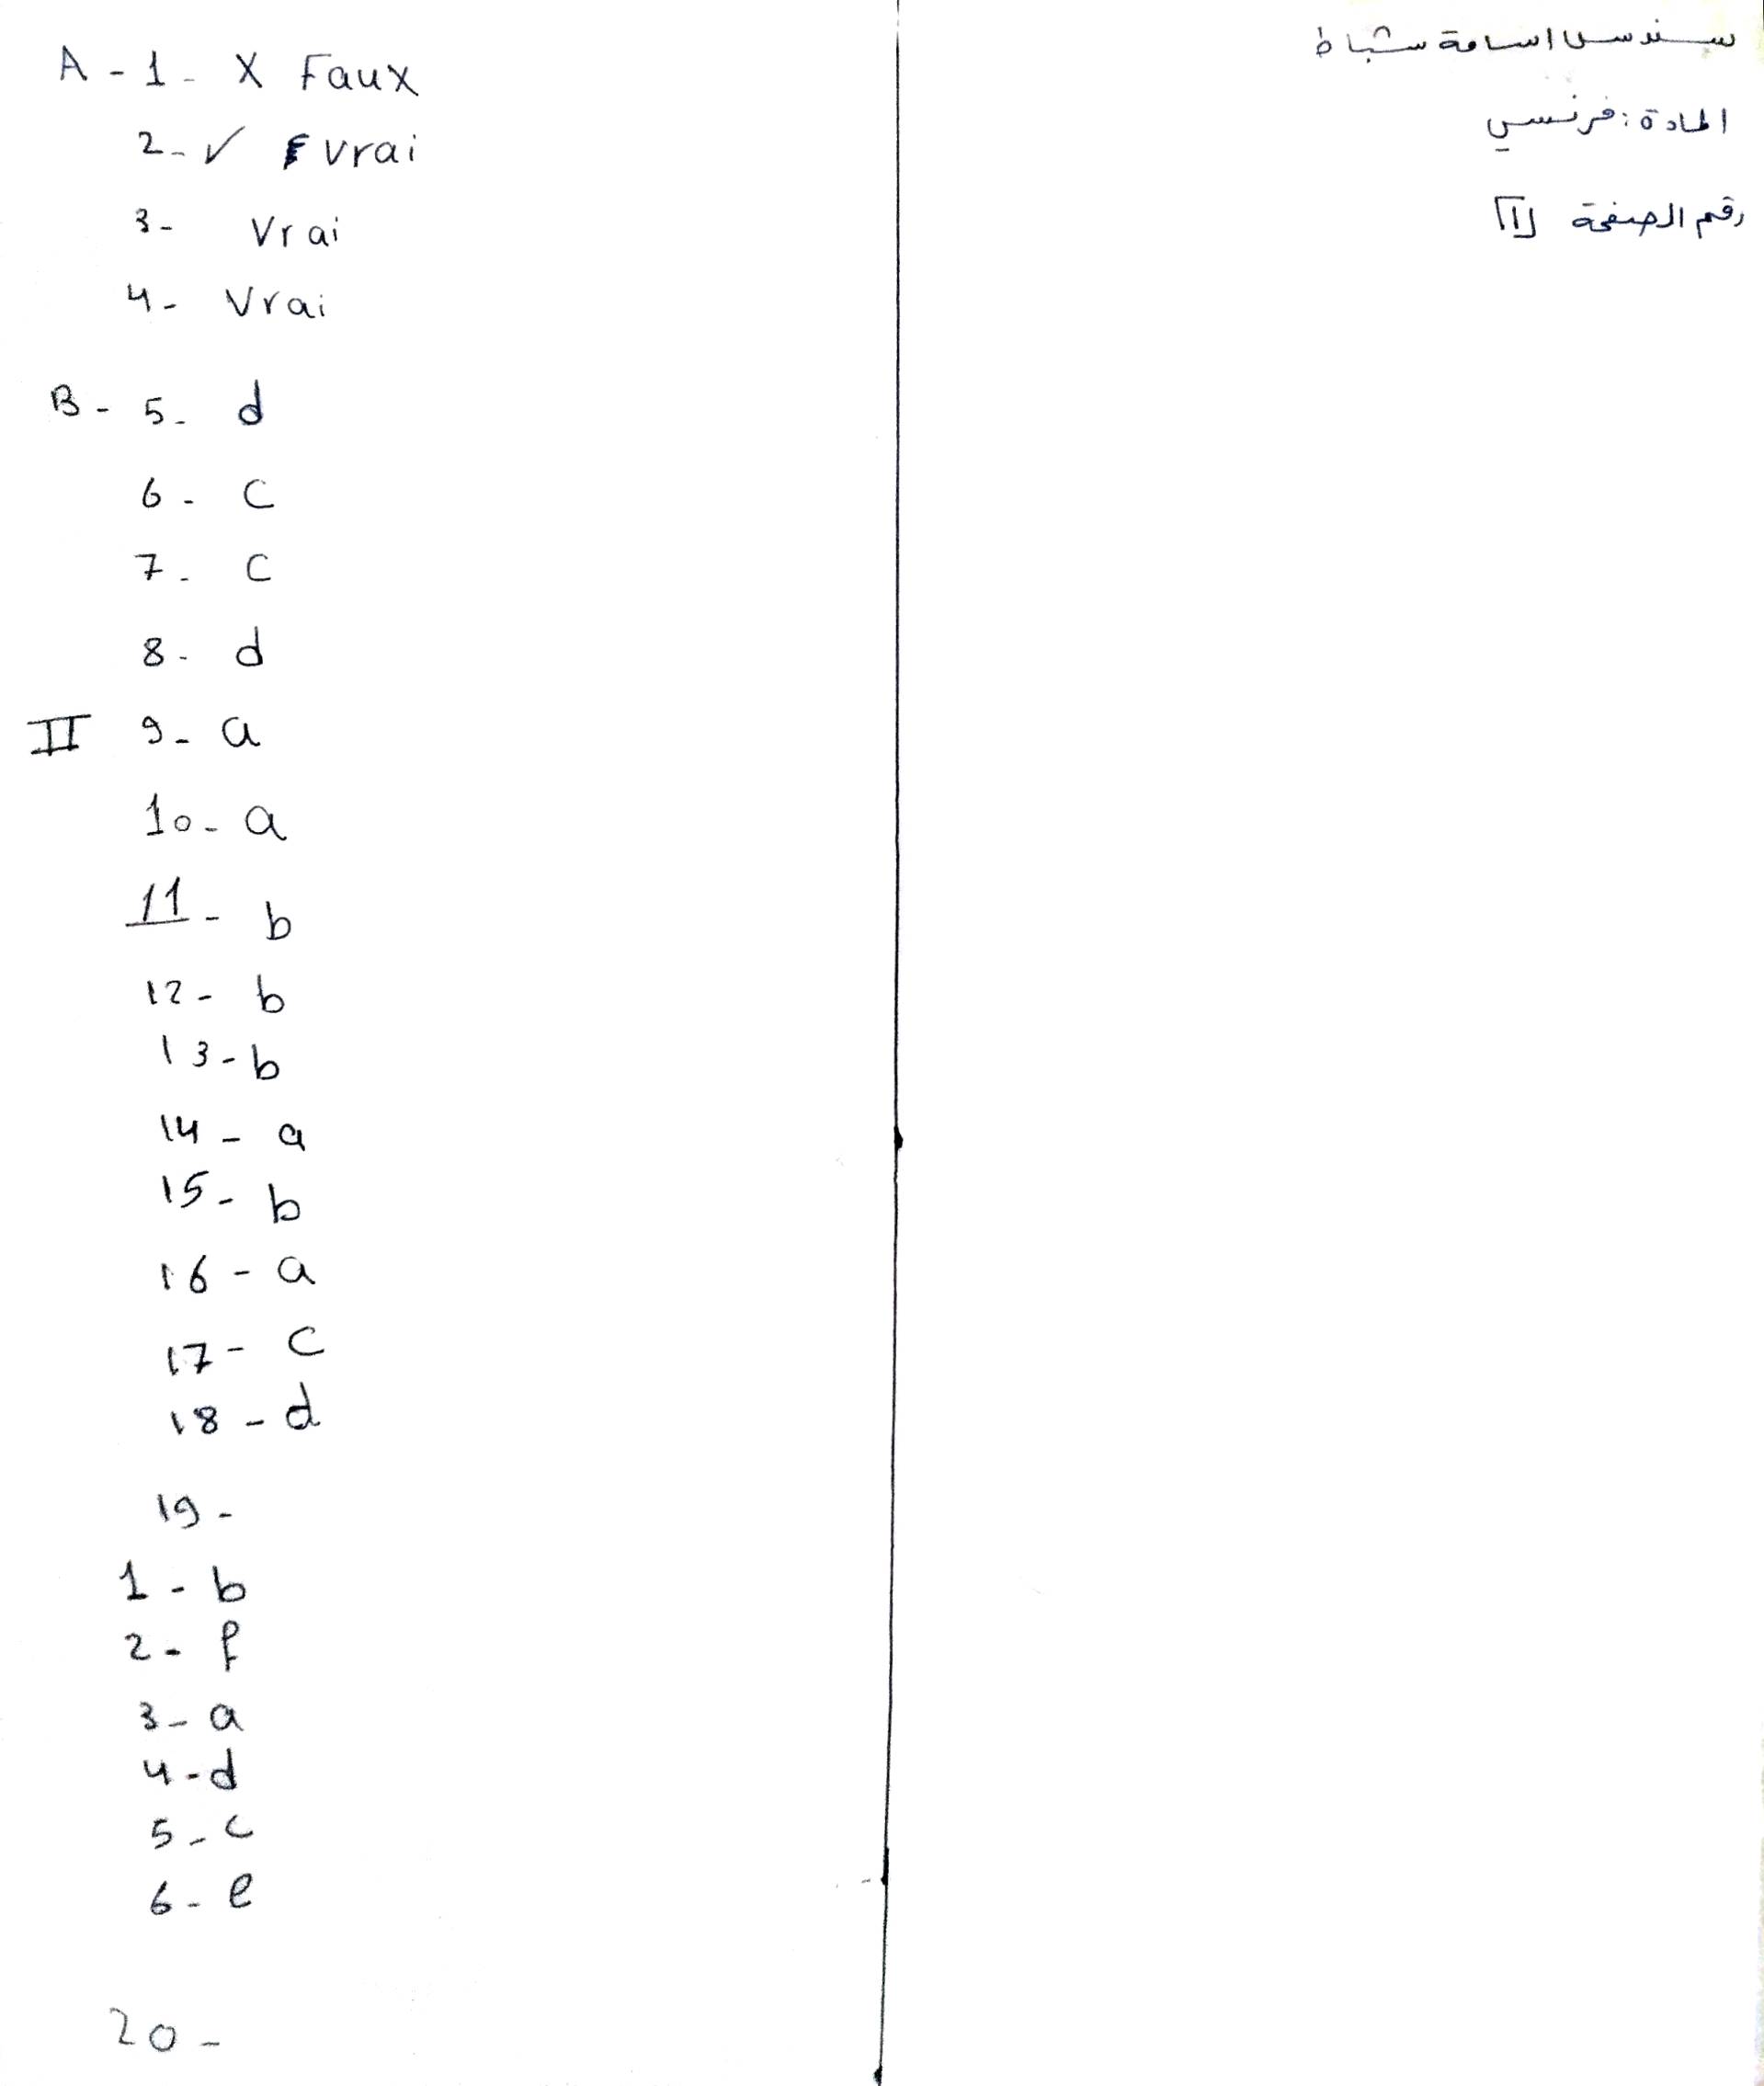 سندس اسامة شباط
المادة : فرنسي
رقم الصفحة [1]
A - 1 - X Faux
2 - ✓ vrai
3 - Vrai
4 - Vrai
B - 5 - d
6 - c
7 - c
8 - d
II 9 - a
10 - a
11 - b
12 - b
13 - b
14 - a
15 - b
16 - a
17 - c
18 - d
19 -
1 - b
2 - f
3 - a
4 - d
5 - c
6 - e
20 -